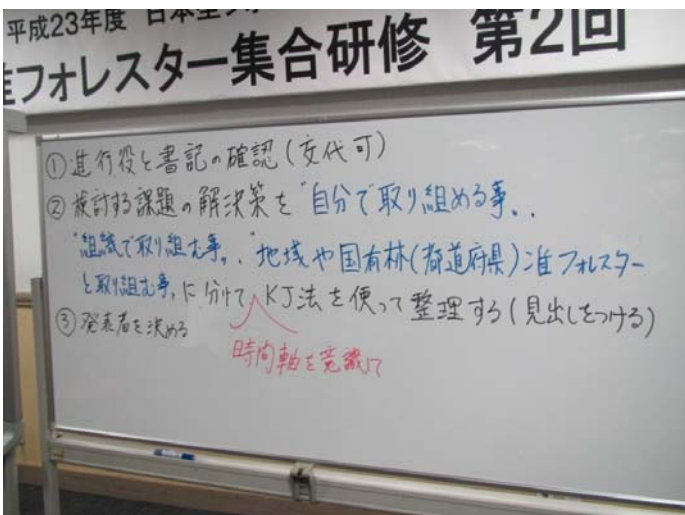 平成23年度 日本型フォ
准フォレスター集合研修 第2回
①進行役と書記の確認(交代可)
②検討する課題の解決策を"自分で取り組める事"
"組織で取り組む事" "地域や国有林(都道府県)准フォレスター
と取り組む事"に分けて、KJ法を使って整理する(見出しをつける)
③発表者を決める
時間軸を意識して